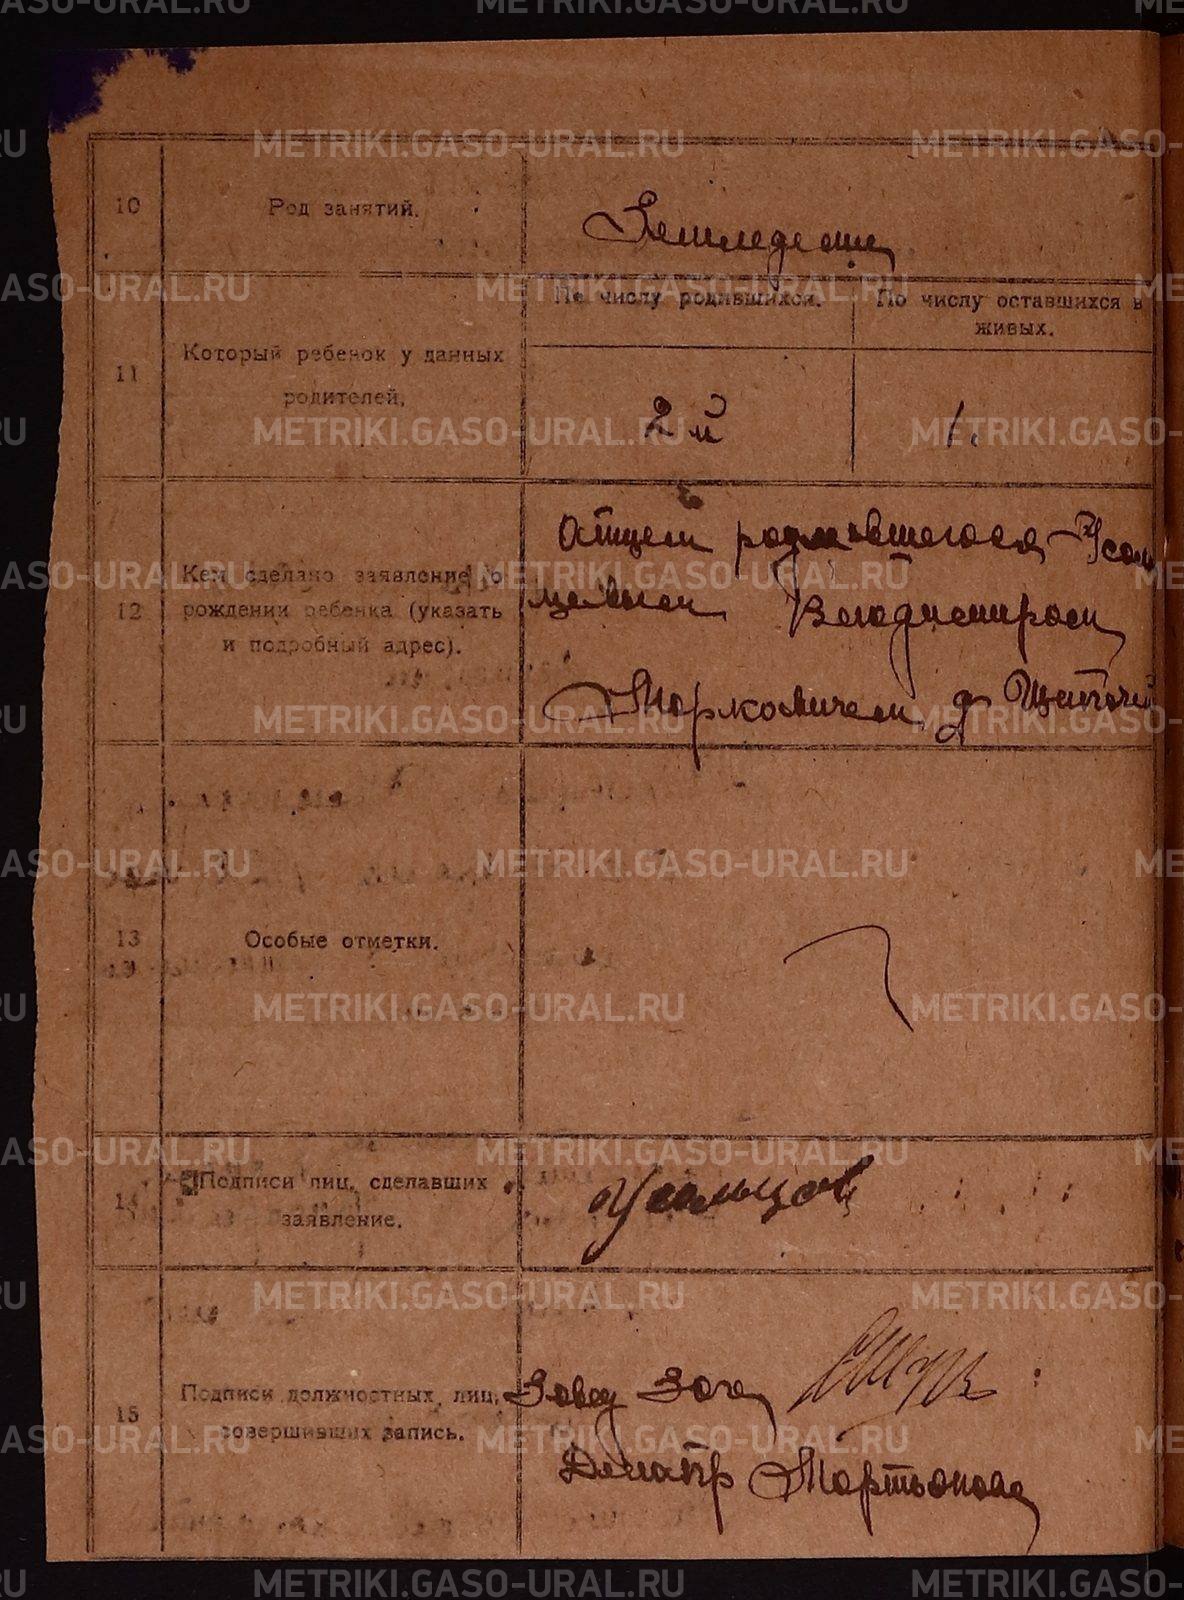 METRIKI.GASO-URAL.RU
10
Род занятий.
Земледелие
11
Который ребенок у данных
родителей.
По числу родившихся.
По числу оставшихся в
живых.
2 й
1.
12
Кем сделано заявление о
рождении ребенка (указать
и подробный адрес).
Отцем родившегося Усоль
цевым Владимиром
Марковичем д
13
Особые отметки.
14
Подписи лиц, сделавших
заявление.
Усольцев
15
Подписи должностных лиц,
совершивших запись.
Завед
Мартьянова